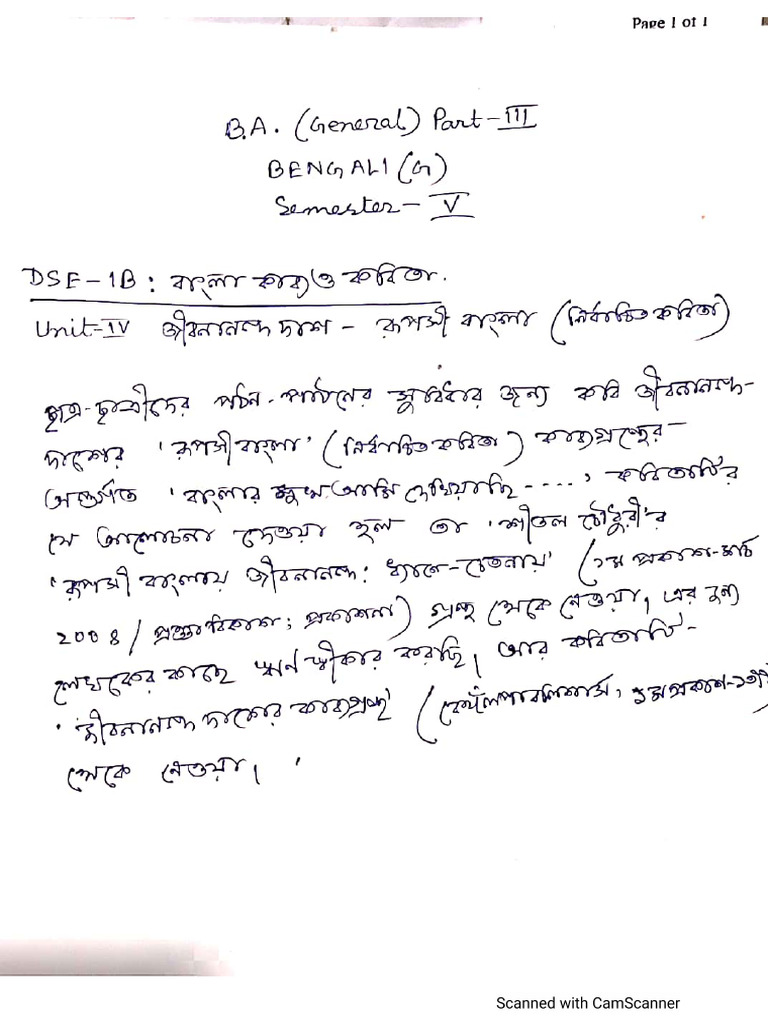 Page 1 of 1
B.A. (General) Part-III
BENGALI (G)
Semester- V
DSE-1B : বাংলা কাব্য ও কবিতা.
Unit-IV জীবনানন্দ দাশ - রূপসী বাংলা (নির্বাচিত কবিতা)
ছাত্র-ছাত্রীদের পঠন-পাঠনের সুবিধার জন্য কবি জীবনানন্দ-
দাশের 'রূপসী বাংলা' (নির্বাচিত কবিতা) কাব্যগ্রন্থের-
অন্তর্গত 'বাংলার মুখ আমি দেখিয়াছি-....' কবিতাটির
যে আলোচনা দেওয়া হল তা 'শীতল চৌধুরী'র
'রূপসী বাংলায় জীবনানন্দ: ধ্যানে-চেতনায়' (১ম প্রকাশ-মার্চ
2008 / প্রজ্ঞাবিকাশ; প্রকাশনা) গ্রন্থ থেকে নেওয়া। এর জন্য
লেখকের কাছে ঋণ স্বীকার করছি। আর কবিতাটি-
'জীবনানন্দ দাশের কাব্যগ্রন্থ' ( ১ম প্রকাশ-
থেকে নেওয়া।
Scanned with CamScanner